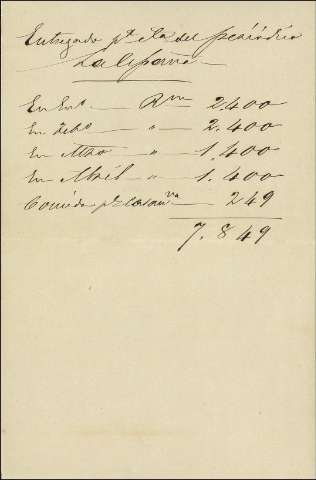 Entregado pr. Cta del periódico
La España
En Eno. Rvn 2.400
En Febo " 2.400
En Mzo " 1.400
En Abril " 1.400
Comida pr 249
7.849